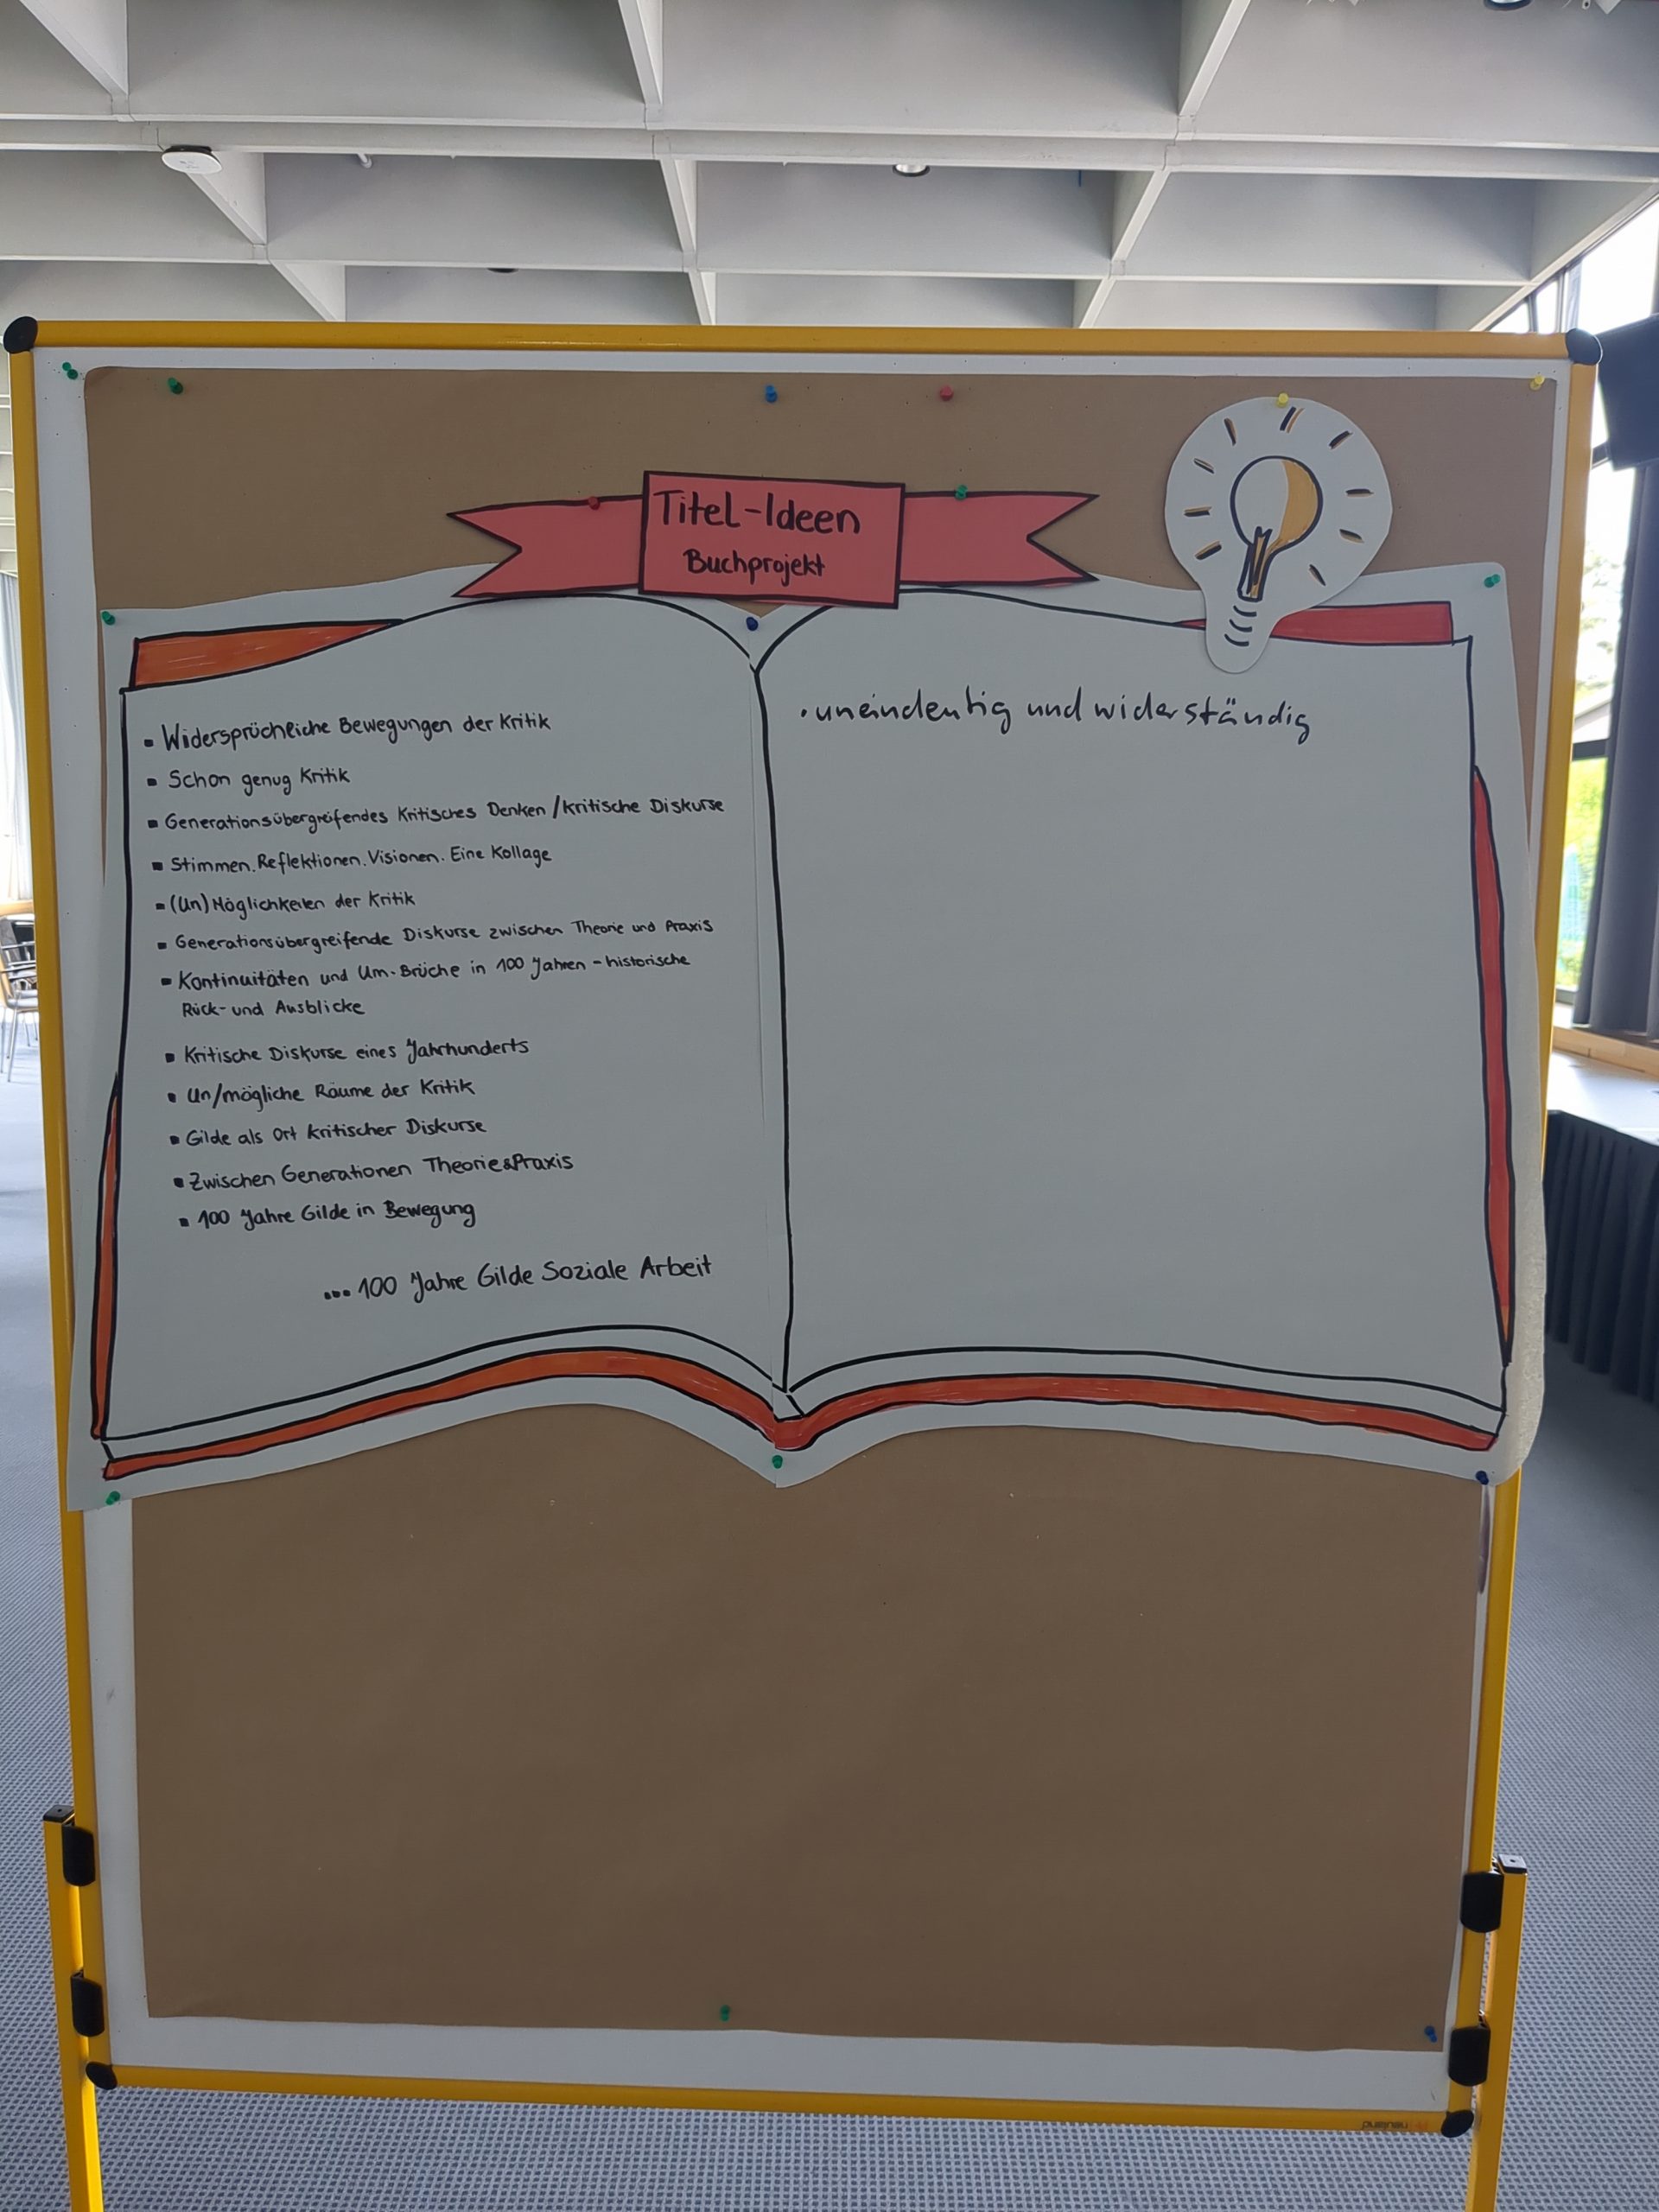 Titel-Ideen
Buchprojekt
▪ Widersprüchliche Bewegungen der Kritik
▪ Schon genug Kritik
▪ Generationsübergreifendes Kritisches Denken /kritische Diskurse
▪ Stimmen. Reflektionen. Visionen. Eine Kollage
▪ (Un) Möglichkeiten der Kritik
▪ Generationsübergreifende Diskurse zwischen Theorie und Praxis
▪ Kontinuitäten und Um-Brüche in 100 Jahren - historische
Rück- und Ausblicke
▪ Kritische Diskurse eines Jahrhunderts
▪ Un/mögliche Räume der Kritik
▪ Gilde als Ort kritischer Diskurse
▪ Zwischen Generationen Theorie&Praxis
▪ 100 Jahre Gilde in Bewegung
... 100 Jahre Gilde Soziale Arbeit
• uneindeutig und widerständig
neuland